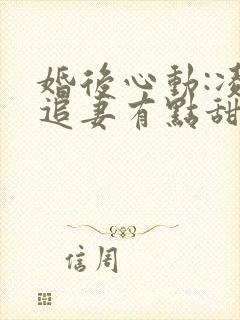 婚後心動:凌
追妻有點甜
信周